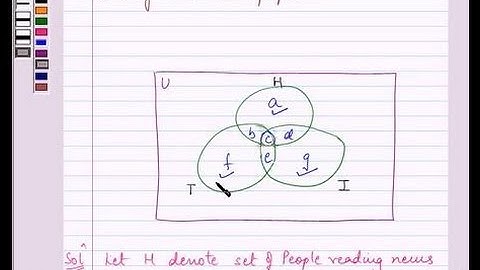 U
H
a
b c d
f e g
T
I
Sol^n Let H denote set of People reading news